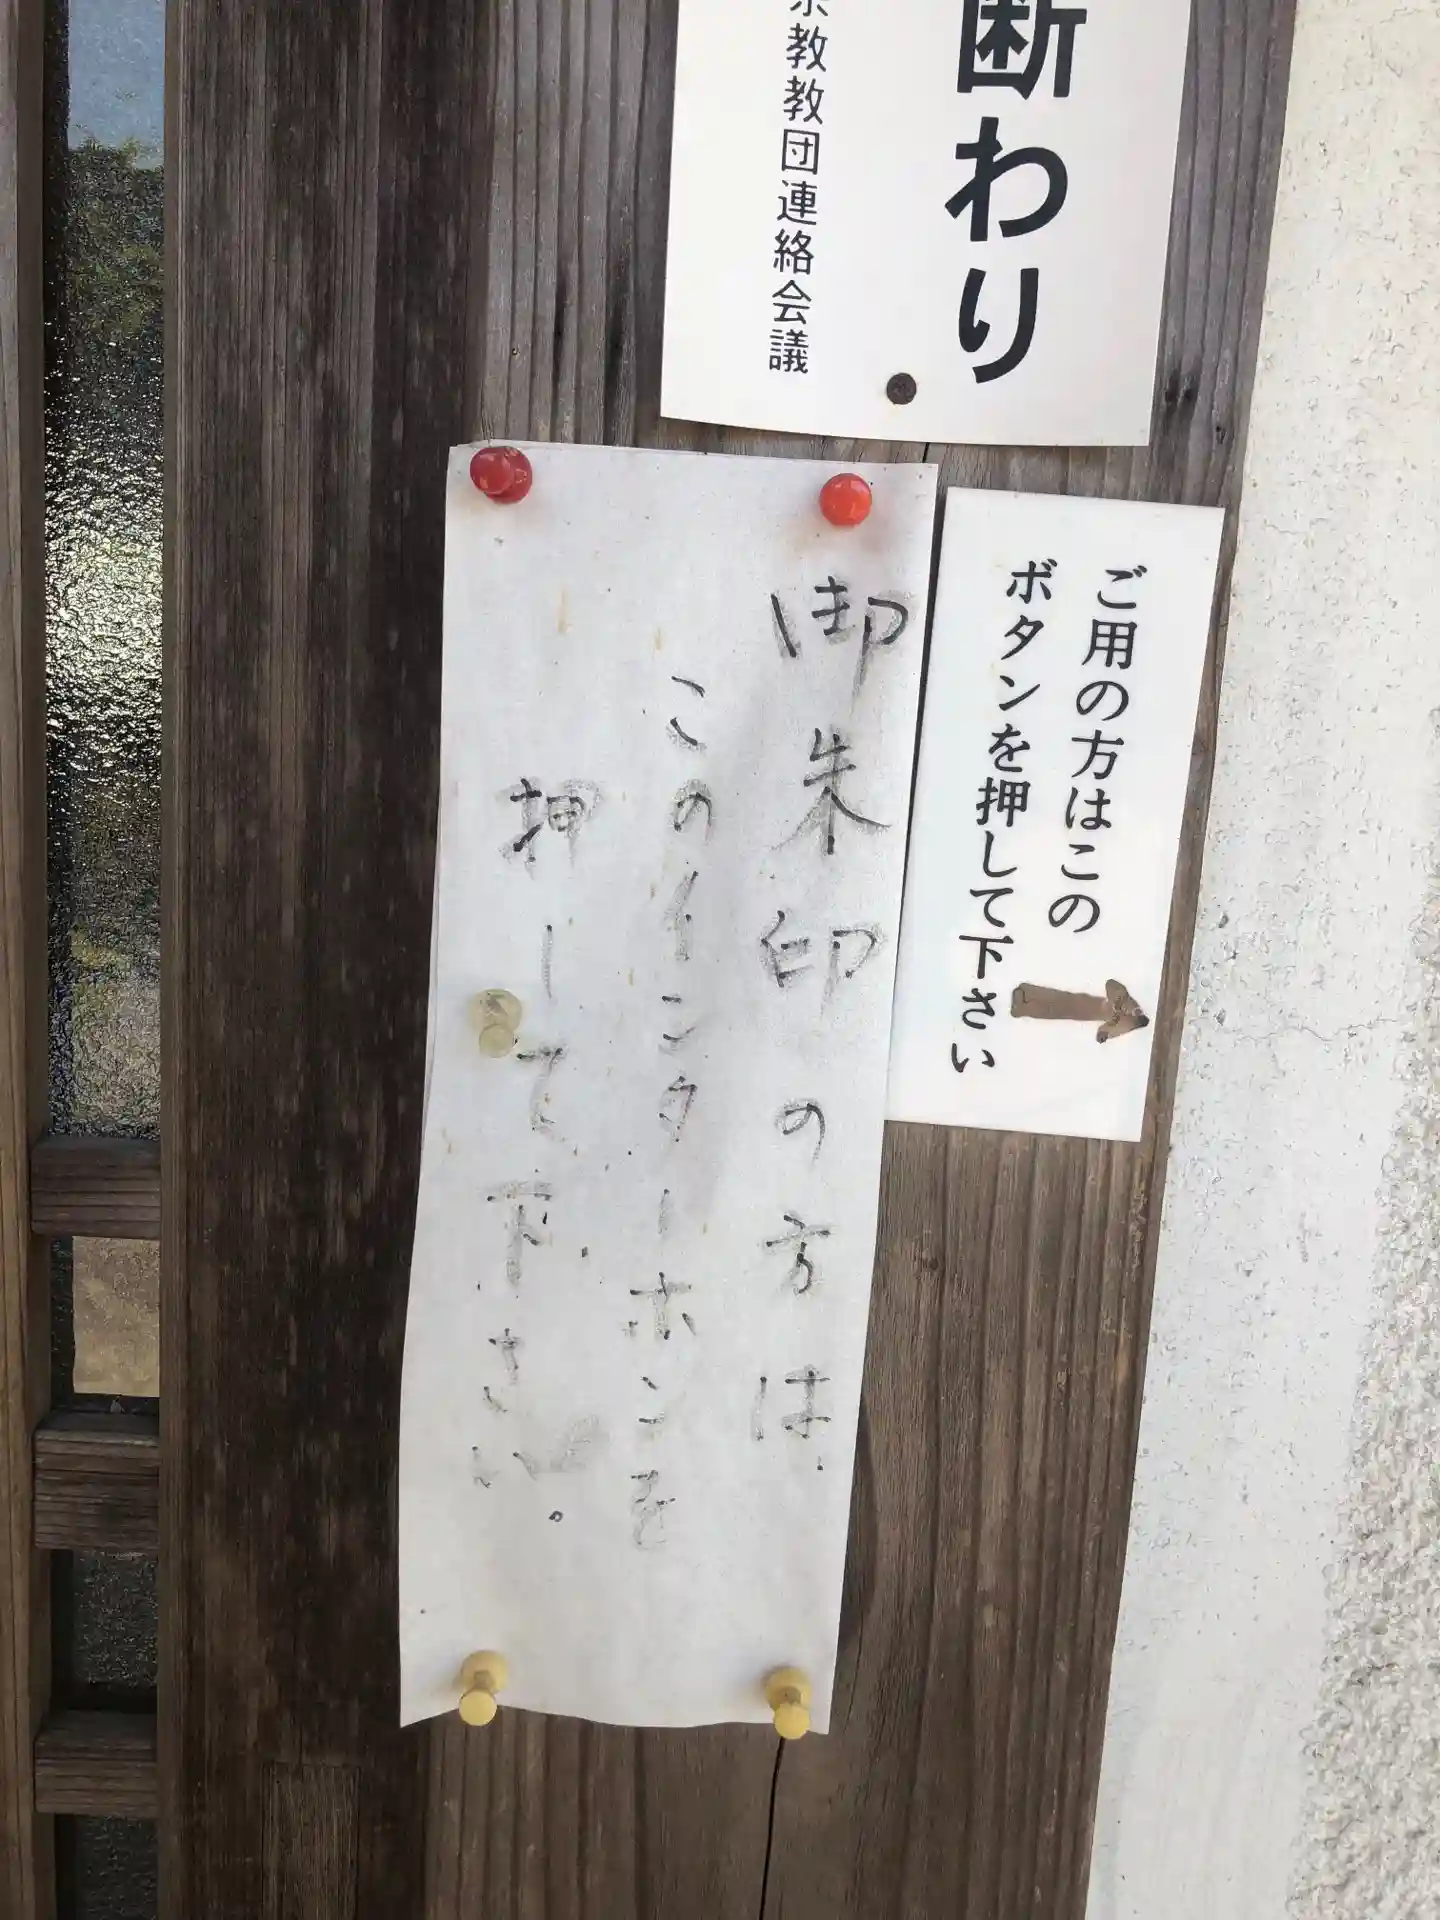 断わり
教教団連絡会議
ご用の方はこの
ボタンを押して下さい
御朱印の方は、
このインターホンを
押して下さい。